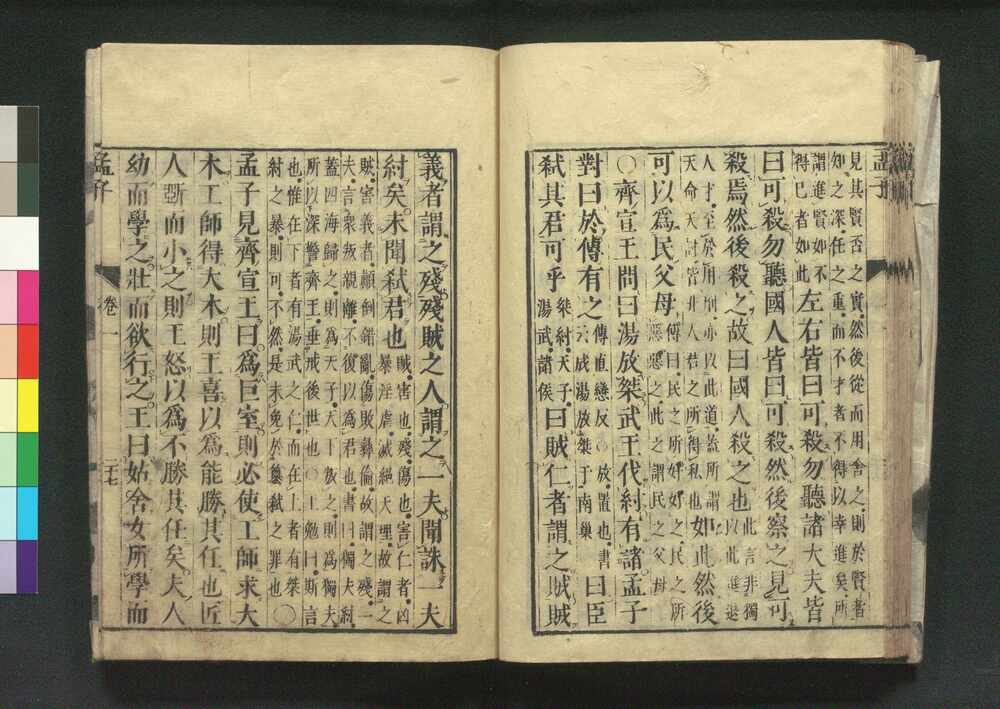 見其賢否之實然後從而用舍之則於賢者
知之深任之重而不才者不得以幸進矣所
謂進賢如不
得已者如此
左右皆曰可殺勿聽諸大夫皆
曰可殺勿聽國人皆曰可殺然後察之見可
殺焉然後殺之故曰國人殺之也
此言非獨
以此進退
人才至於用刑亦以此道蓋所謂
天命天討皆非人君之所得私也
如此然後
可以爲民父母
傳曰民之所好好之民之所
惡惡之此之謂民之父母
○齊宣王問曰湯放桀武王伐紂有諸孟子
對曰於傳有之
傳直戀反○放置也書
云成湯放桀于南巢
曰臣
弑其君可乎
桀紂天子
湯武諸侯
曰賊仁者謂之賊賊
孟子
義者謂之殘殘賊之人謂之一夫聞誅一夫
紂矣未聞弑君也
賊害也殘傷也害仁者凶
暴淫虐滅絕天理故謂之
賊害義者顚倒錯亂傷敗彝倫故謂之殘一
夫言衆叛親離不復以爲君也書曰獨夫紂
蓋四海歸之則爲天子天下叛之則爲獨夫
所以深警齊王垂戒後世也○王勉曰斯言
也惟在下者有湯武之仁而在上者有桀
紂之暴則可不然是未免於簒弑之罪也
○
孟子見齊宣王曰爲巨室則必使工師求大
木工師得大木則王喜以爲能勝其任也匠
人斲而小之則王怒以爲不勝其任矣夫人
幼而學之壯而欲行之王曰姑舍女所學而
孟子
卷一
二十七